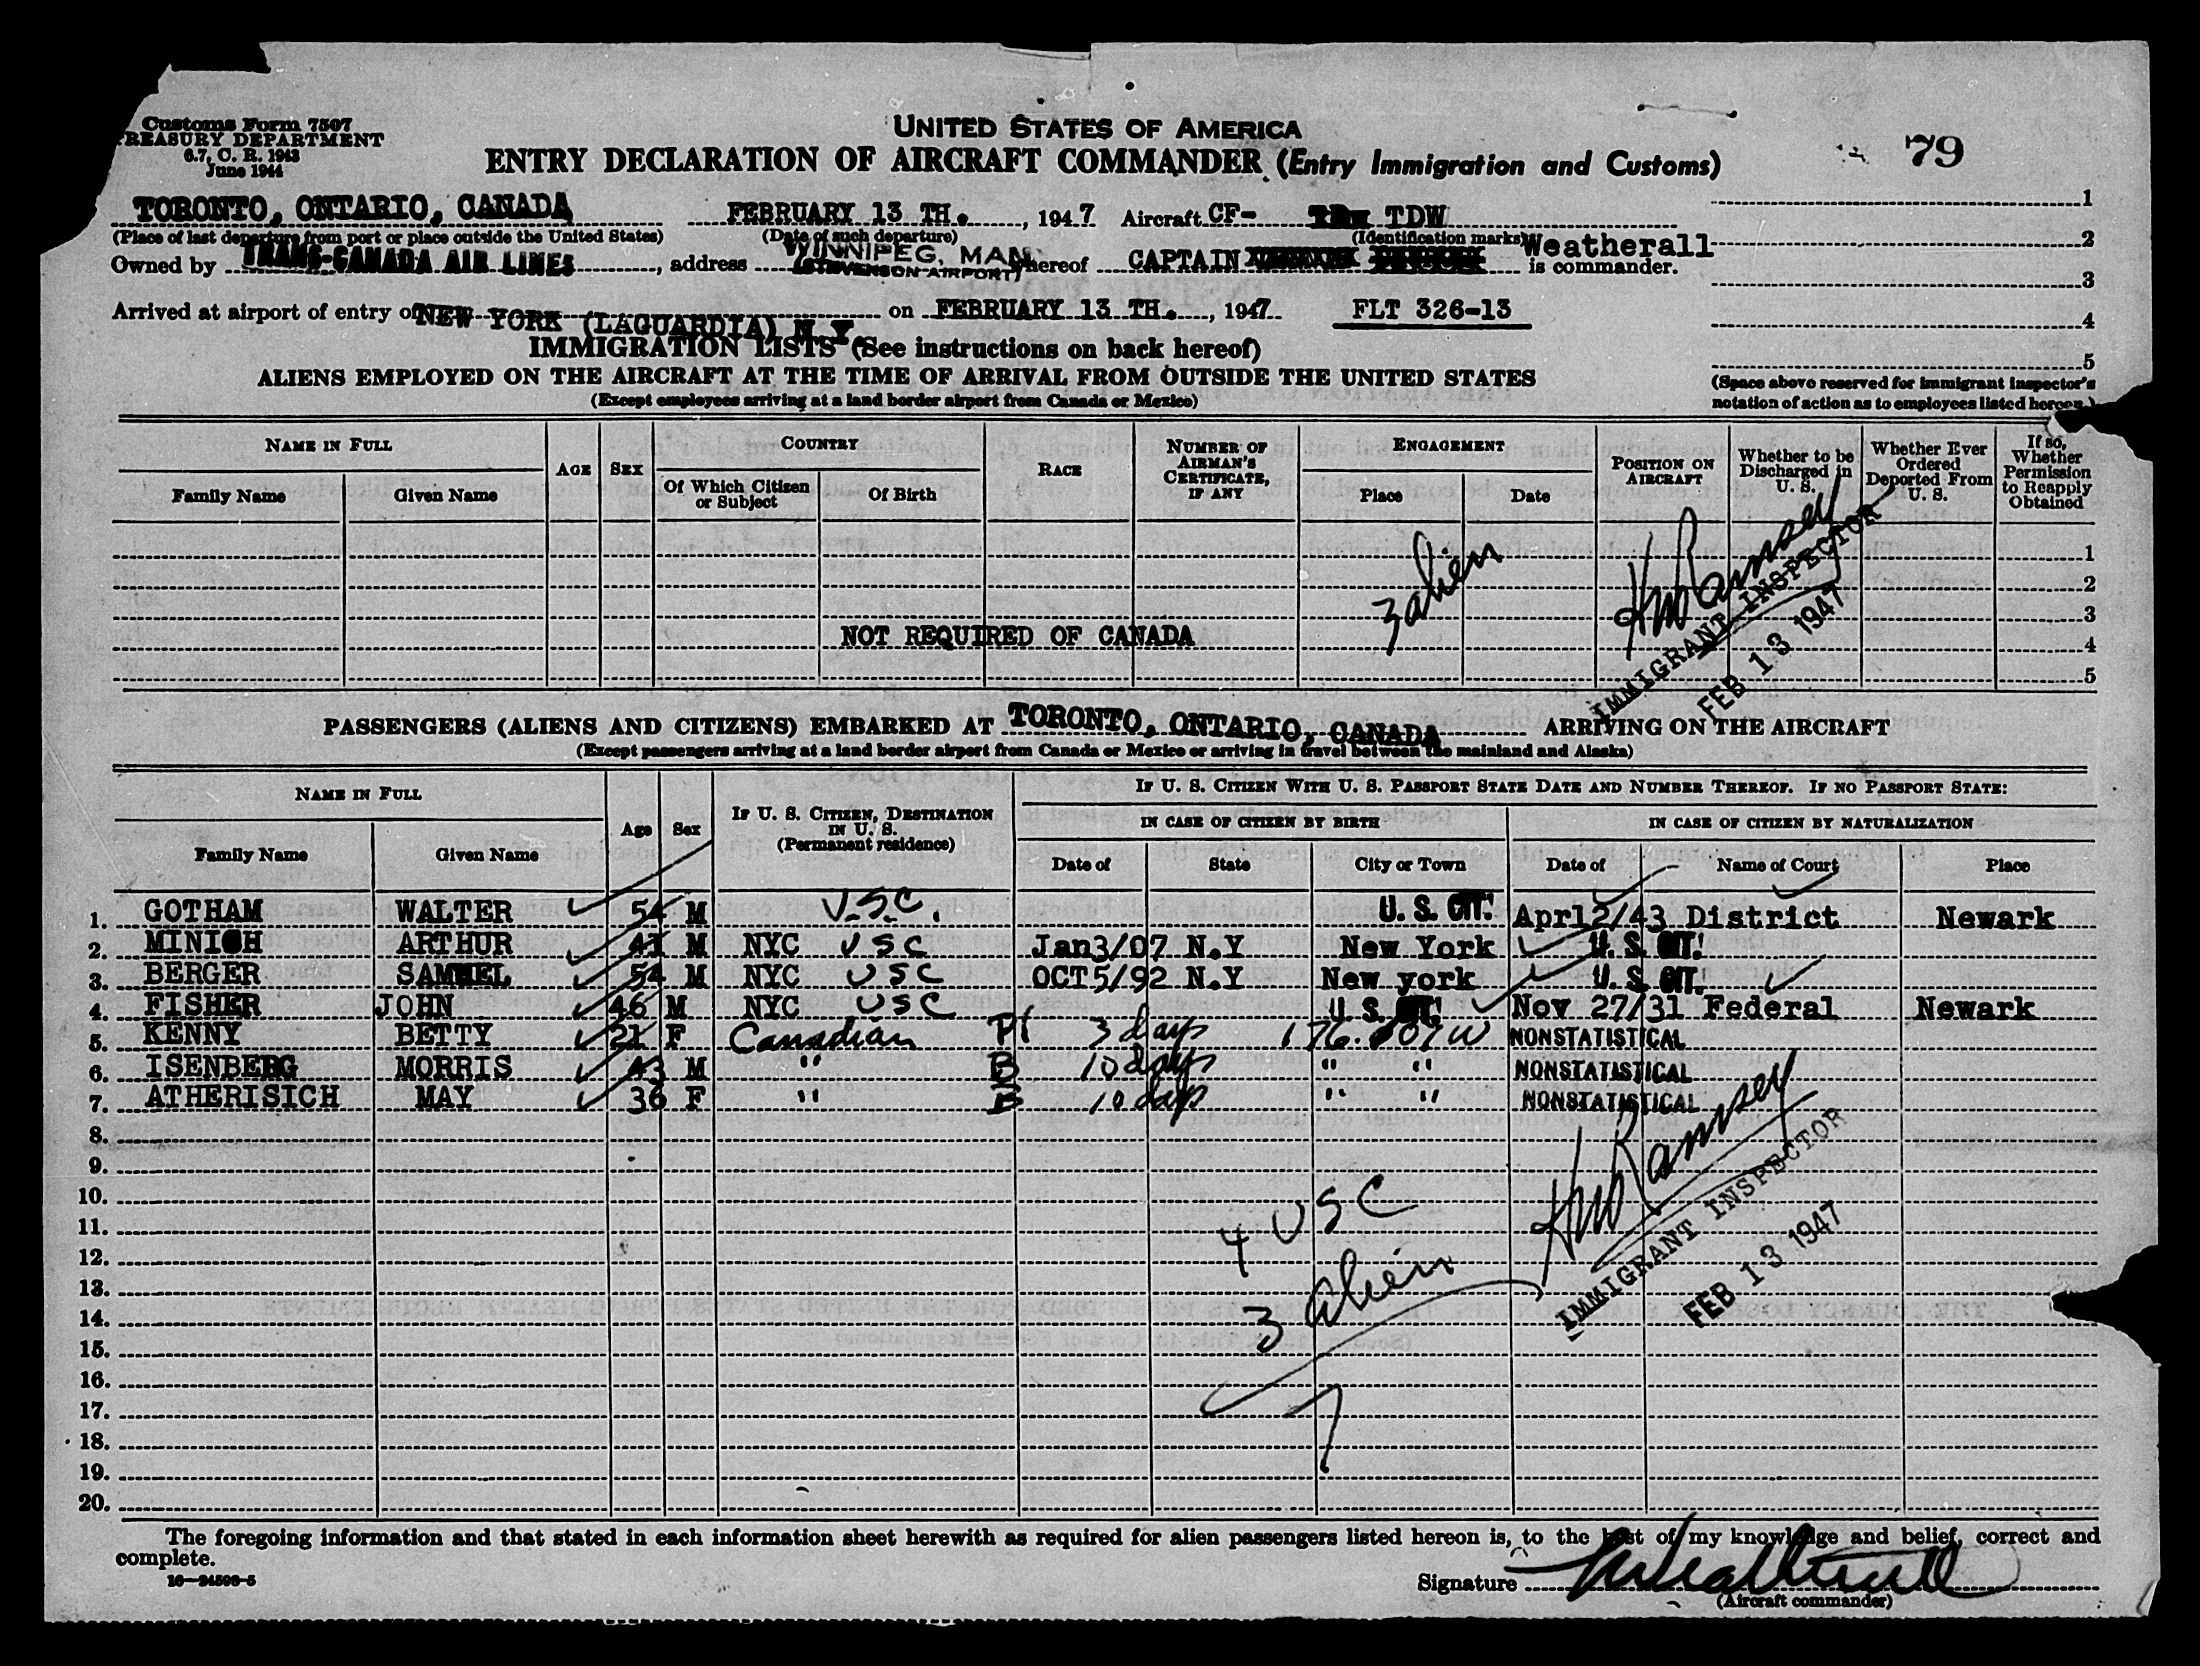 Customs Form 7507
TREASURY DEPARTMENT
6.7, C. R. 1943
June 1944
UNITED STATES OF AMERICA
ENTRY DECLARATION OF AIRCRAFT COMMANDER (Entry Immigration and Customs)
79
TORONTO, ONTARIO, CANADA FEBRUARY 13 TH. , 1947 Aircraft CF- TDW 1
(Place of last departure from port or place outside the United States) (Date of such departure) (Identification marks) 2
Owned by TRANS-CANADA AIR LINES , address WINNIPEG, MAN. (STEVENSON AIRPORT) whereof CAPTAIN Weatherall is commander.
3
Arrived at airport of entry of NEW YORK (LAGUARDIA) N.Y. on FEBRUARY 13 TH. , 1947 FLT 326-13
4
IMMIGRATION LISTS (See instructions on back hereof)
5
ALIENS EMPLOYED ON THE AIRCRAFT AT THE TIME OF ARRIVAL FROM OUTSIDE THE UNITED STATES
(Except employees arriving at a land border airport from Canada or Mexico)
(Space above reserved for immigrant inspector's
notation of action as to employees listed hereon.)
NAME IN FULL AGE SEX COUNTRY RACE NUMBER OF AIRMAN'S CERTIFICATE, IF ANY ENGAGEMENT POSITION ON AIRCRAFT Whether to be Discharged in U. S. Whether Ever Ordered Deported From U. S. If so, Whether Permission to Reapply Obtained
Family Name Given Name Of Which Citizen or Subject Of Birth Place Date
1
2
3
NOT REQUIRED OF CANADA
4
5
3 alien
KW Ramsey
IMMIGRANT INSPECTOR
FEB 13 1947
PASSENGERS (ALIENS AND CITIZENS) EMBARKED AT TORONTO, ONTARIO, CANADA ARRIVING ON THE AIRCRAFT
(Except passengers arriving at a land border airport from Canada or Mexico or arriving in travel between the mainland and Alaska)
NAME IN FULL Age Sex IF U. S. CITIZEN, DESTINATION IN U. S. (Permanent residence) IF U. S. CITIZEN WITH U. S. PASSPORT STATE DATE AND NUMBER THEREOF. IF NO PASSPORT STATE:
IN CASE OF CITIZEN BY BIRTH IN CASE OF CITIZEN BY NATURALIZATION
Family Name Given Name Date of State City or Town Date of Name of Court Place
1. GOTHAM WALTER 54 M U.S.C. U. S. CIT. Apr12/43 District Newark
2. MINICH ARTHUR 41 M NYC USC Jan3/07 N.Y New York U. S. CIT.
3. BERGER SAMUEL 54 M NYC USC OCT5/92 N.Y New york U. S. CIT.
4. FISHER JOHN 46 M NYC USC U. S. CIT. Nov 27/31 Federal Newark
5. KENNY BETTY 21 F Canadian 3 days NONSTATISTICAL
6. ISENBERG MORRIS 43 M " B 10 days " " NONSTATISTICAL
7. ATHERISICH MAY 36 F " B 10 days " " NONSTATISTICAL
8.
9.
10.
11.
12.
13.
14.
15.
16.
17.
18.
19.
20.
4 USC
3 alien
7
KW Ramsey
IMMIGRANT INSPECTOR
FEB 13 1947
The foregoing information and that stated in each information sheet herewith as required for alien passengers listed hereon is, to the best of my knowledge and belief, correct and
complete.
16—24598-5
Signature Weatherall
(Aircraft commander)